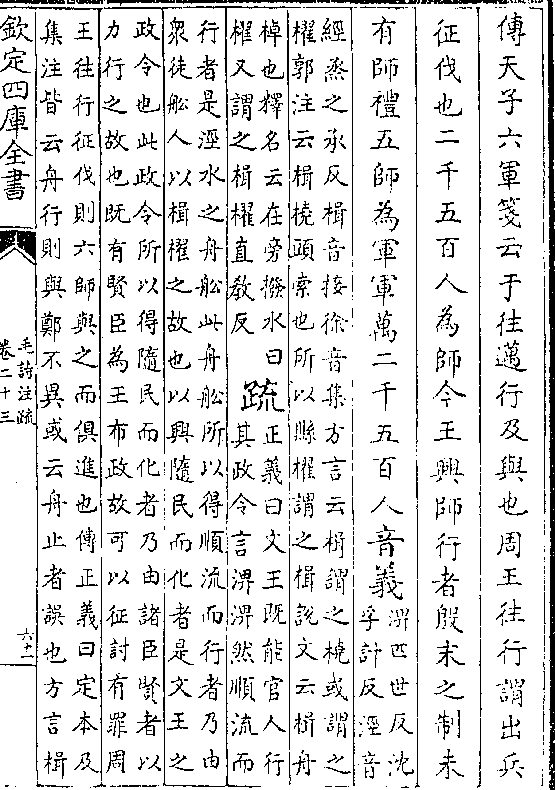 傳天子六軍箋云于往邁行及與也周王往行謂出兵
征伐也二千五百人為師今王興師行者殷末之制未
有師禮五師為軍軍萬二千五百人音義
淠匹世反沈
孚計反涇音
經烝之承反楫音接徐音集方言云楫謂之橈或謂之
櫂郭注云楫橈頭索也所以縣櫂謂之楫說文云楫舟
棹也釋名云在旁撥水曰
櫂又謂之楫櫂直教反
疏
正義曰文王既能官人行
其政令言淠淠然順流而
行者是涇水之舟舩此舟舩所以得順流而行者乃由
衆徒舩人以楫櫂之故也以興隨民而化者是文王之
政令也此政令所以得隨民而化者乃由諸臣賢者以
力行之故也既有賢臣為王布政故可以征討有罪周
王往行征伐則六師與之而俱進也傳正義曰定本及
集注皆云舟行則與鄭不異或云舟止者誤也方言楫
欽定四庫全書
毛詩注疏
卷二十三
六十一